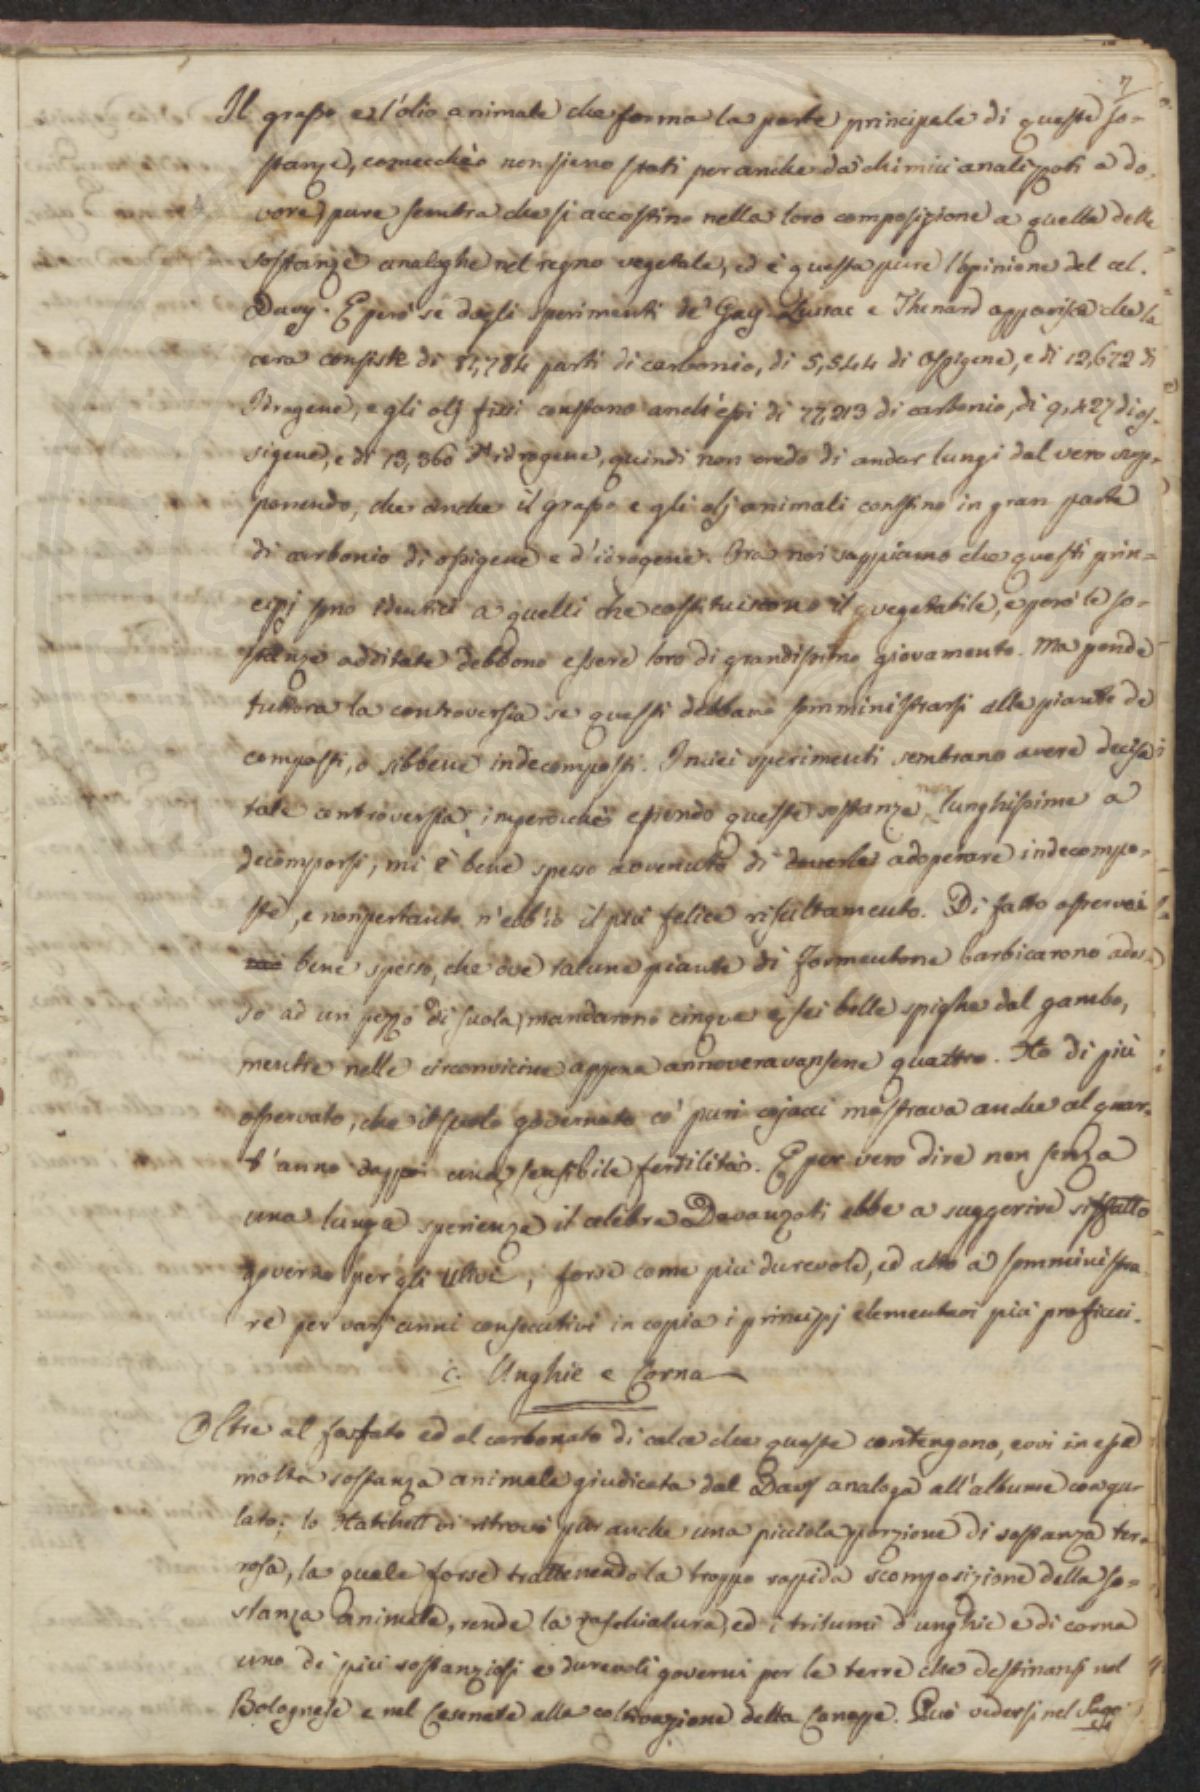 7
Il grasso e l'olio animale che forma la parte principale di queste so-
stanze, comecchè non sieno stati per anche da' chimici analizzati a do-
vere, pure sembra che si accostino nella loro composizione a quelle delle
sostanze analoghe nel regno vegetale, ed è questa pure l'opinione del cel.
Davy. E però se dagli sperimenti de' Gay-Lussac e Thenard apparisce che la
cera consiste di 81,784 parti di carbonio, di 5,544 di Ossigene, e di 12,672 di
Idrogene, e gli olj fissi constano anch'essi di 77,213 di carbonio, di 9,427 di os-
sigene, e di 13,360 d'idrogene, quindi non credo di andar lungi dal vero sup-
ponendo, che anche il grasso e gli olj animali constino in gran parte
di carbonio di ossigene e d'idrogene. Ora noi sappiamo che questi prin-
cipj sono identici a quelli che costituiscono il vegetabile, e però le so-
stanze additate debbono essere loro di grandissimo giovamento. Ma pende
tuttora la controversia se questi debbano somministrarsi alle piante de
composti, o sibbene indecomposti. I miei sperimenti sembrano avere decisa
tale controversia; imperocchè essendo queste sostanze lunghissime a
decomporsi, mi è bene spesso avvenuto di doverle adoperare indecompo-
ste, e nonpertanto n'ebb'io il più felice risultamento. Di fatto osservai
bene spesso, che ove talune piante di Formentone barbicarono ades-
so ad un pezzo di suola, mandarono cinque e sei belle spighe dal gambo,
mentre nelle circonvicine appena annoveravansene quattro. Ho di più
osservato, che il suolo governato co' puri cojacci mostrava anche al quar-
t'anno dappoi una sensibile fertilità. E per vero dire non senza
una lunga sperienza il celebre Davanzati ebbe a suggerire siffatto
governo per gli Ulivi, forse come più durevole, ed atto a somministra-
re per varj anni consecutivi in copia i principj elementari più proficui.
c. Unghie e Corna
Oltre al fosfato ed al carbonato di calce che queste contengono, evvi in esse
molta sostanza animale giudicata dal Davy analoga all'albume coagu-
lato; lo Hatchett vi ritrovò pur anche una picciola porzione di sostanza ter-
rosa, la quale forse trattenendo la troppo rapida scomposizione della so-
stanza animale, rende la raschiatura, ed i tritumi d'unghie e di corna
uno de' più sostanziosi e durevoli governi per le terre che destinansi nel
Bolognese e nel Cesenate alla coltivazione della Canapa. Può vedersi nel Sag-